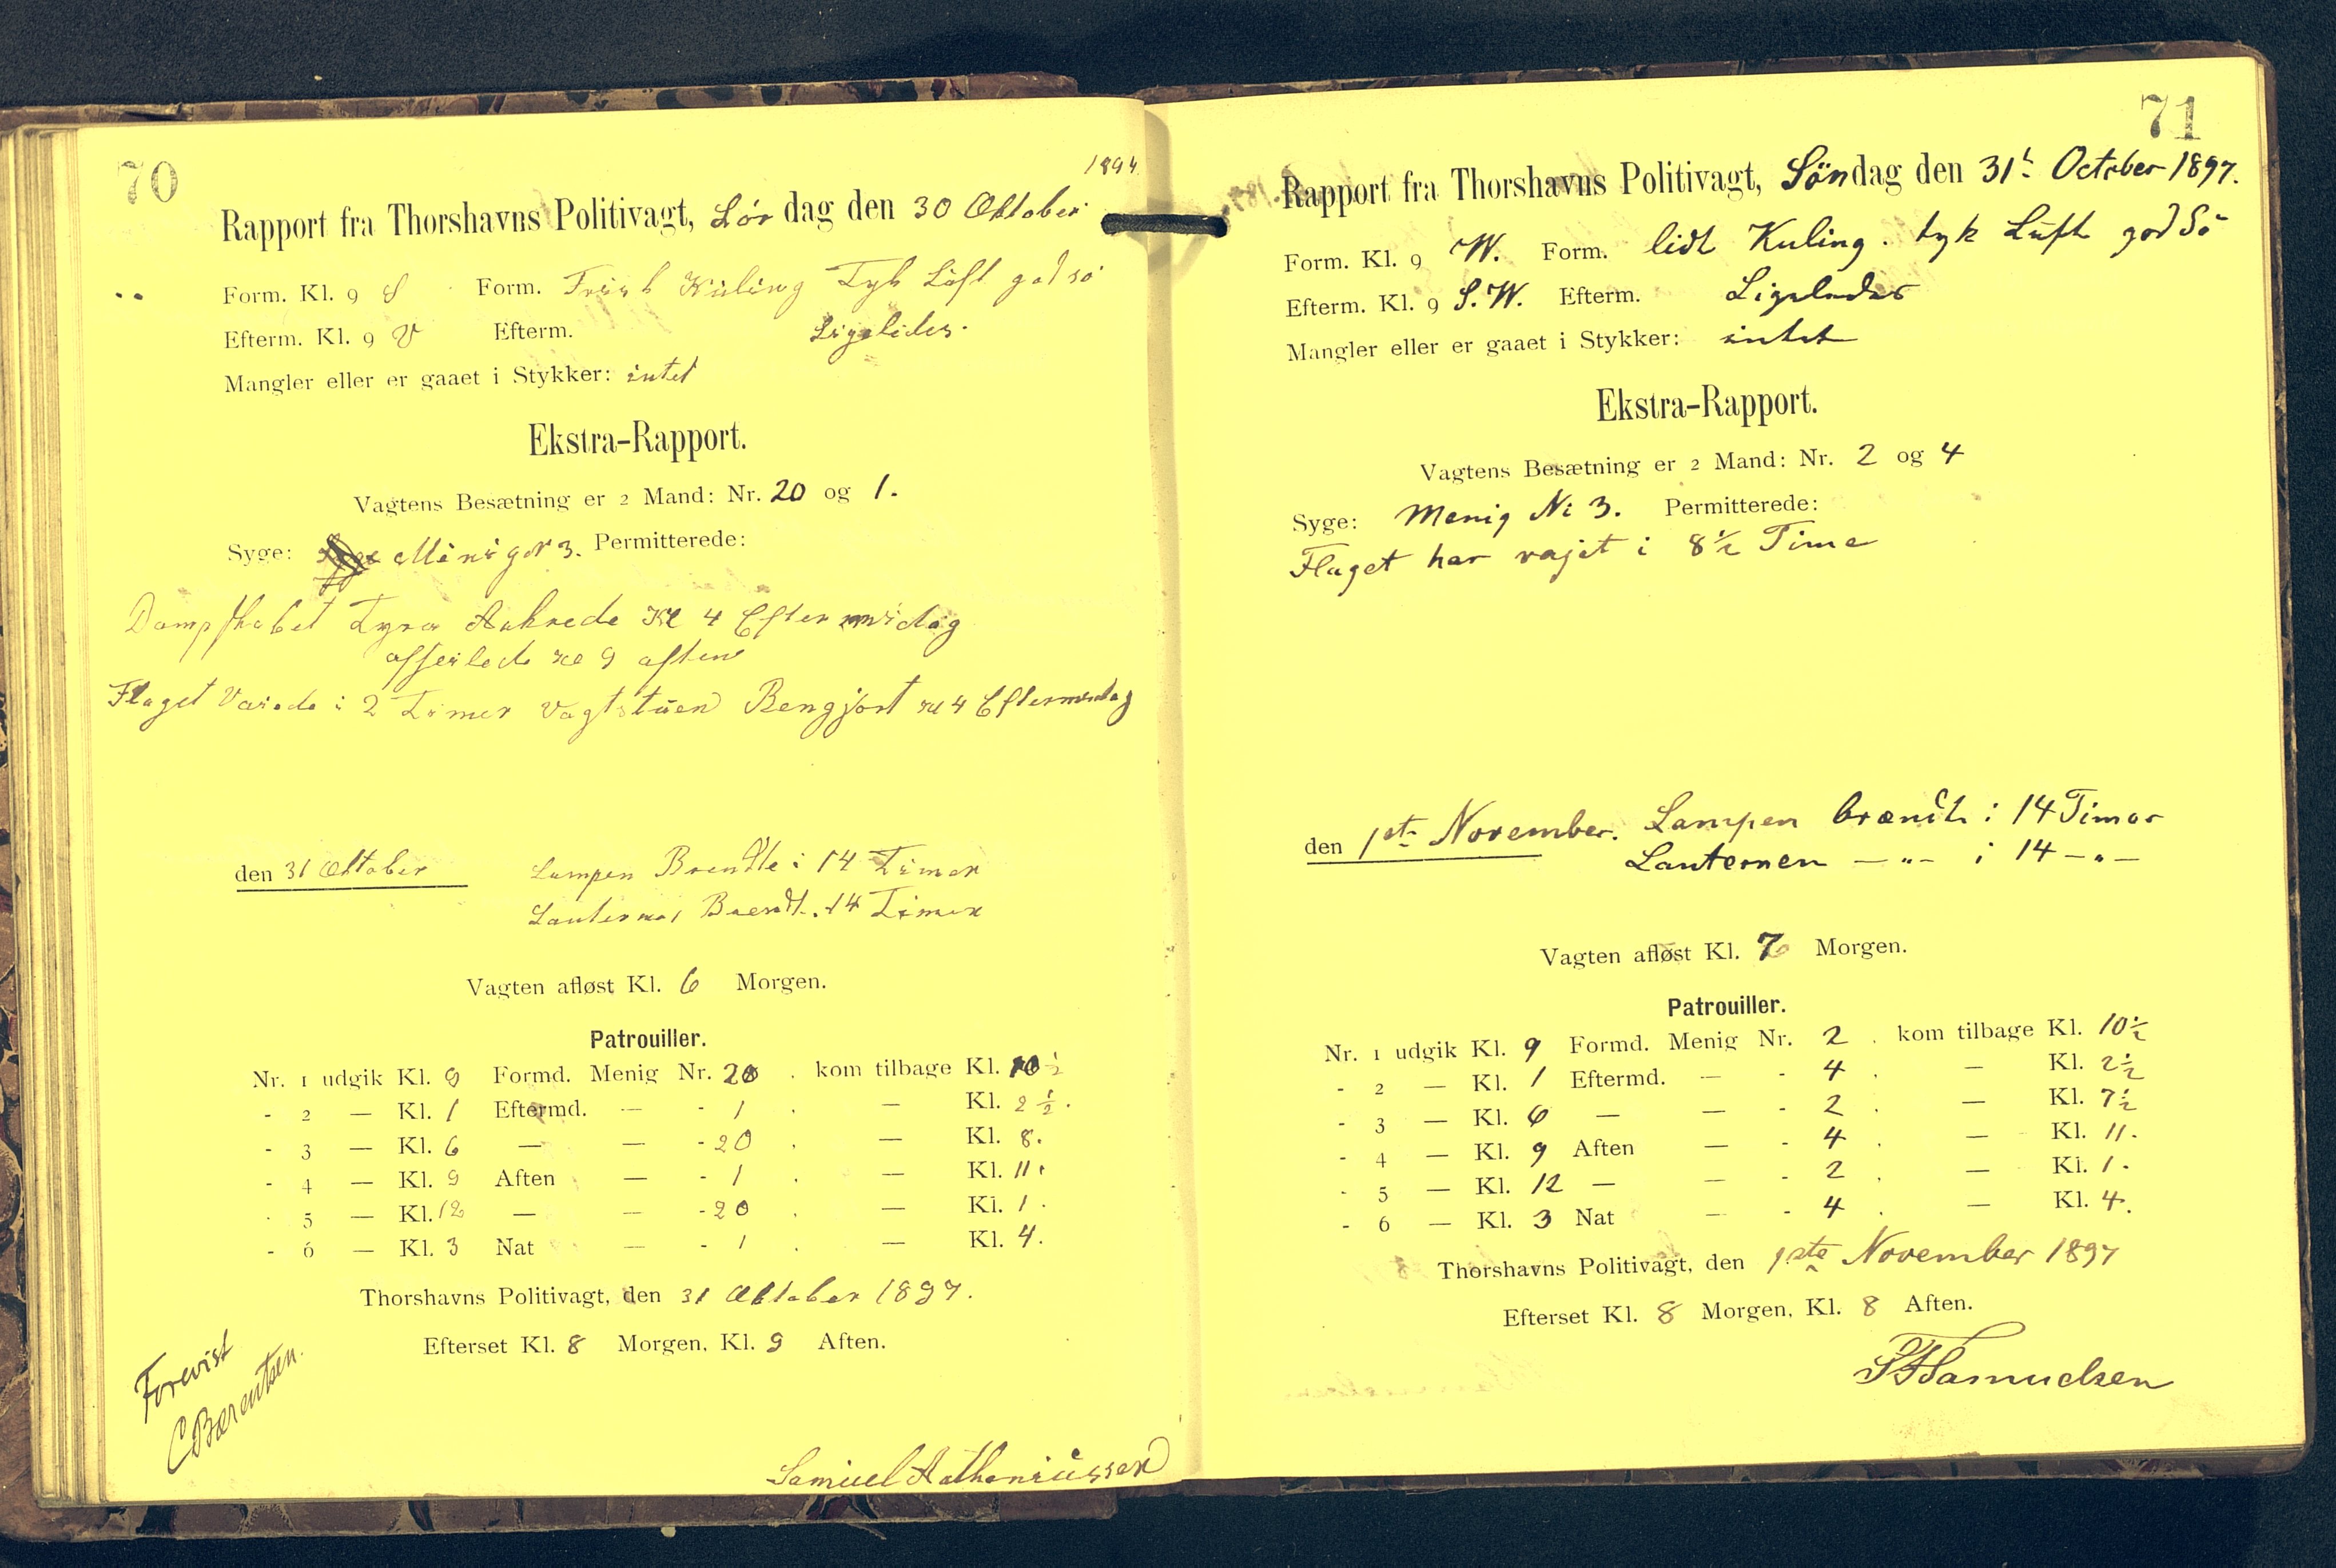 70
1897
Rapport fra Thorshavns Politivagt, Lör dag den 30 Oktober
Form. Kl. 9 S Form. Frisk Kuling Tyk Luft god sö
Efterm. Kl. 9 V Efterm. Ligeledes.
Mangler eller er gaaet i Stykker: intet
Ekstra-Rapport.
Vagtens Besætning er 2 Mand: Nr. 20 og 1.
Syge: Menig N 3. Permitterede:
Dampskabet Tyra Ankrede Kl 4 Eftermidag
afseilede Kl 9 aften
Flaget Vaiede i 2 Timer Vagtstuen Rengjort Kl 4 Eftermidag
den 31 Oktober Lampen Brendte i 14 Timer
Lanternen Brendt. 14 Timer
Vagten afløst Kl. 6 Morgen.
Patrouiller.
Nr. 1 udgik Kl. 9 Formd. Menig Nr. 20 . kom tilbage Kl. 10 ½
- 2 — Kl. 1 Eftermd. — - 1 . — Kl. 2 ½.
- 3 — Kl. 6 — — - 20 . — Kl. 8.
- 4 — Kl. 9 Aften — - 1 . — Kl. 11.
- 5 — Kl. 12 — — - 20 . — Kl. 1.
- 6 — Kl. 3 Nat — - 1 . — Kl. 4.
Thorshavns Politivagt, den 31 Oktober 1897.
Efterset Kl. 8 Morgen, Kl. 9 Aften.
Forevist
CBærentsen.
Samuel Mathaniussen
71
Rapport fra Thorshavns Politivagt, Söndag den 31t October 1897.
Form. Kl. 9 W. Form. lidt Kuling. tyk Luft god Sö
Efterm. Kl. 9 S.W. Efterm. Ligeledes
Mangler eller er gaaet i Stykker: intet
Ekstra-Rapport.
Vagtens Besætning er 2 Mand: Nr. 2 og 4
Syge: Menig Nr 3. Permitterede:
Flaget har vajet i 8½ Time
den 1ste November. Lampen brændt i 14 Timer
Lanternen — " — i 14 — " —
Vagten afløst Kl. 7 Morgen.
Patrouiller.
Nr. 1 udgik Kl. 9 Formd. Menig Nr. 2 . kom tilbage Kl. 10½
- 2 — Kl. 1 Eftermd. — - 4 . — Kl. 2½
- 3 — Kl. 6 — — - 2 . — Kl. 7½
- 4 — Kl. 9 Aften — - 4 . — Kl. 11.
- 5 — Kl. 12 — — - 2 . — Kl. 1.
- 6 — Kl. 3 Nat — - 4 . — Kl. 4.
Thorshavns Politivagt, den 1ste November 1897
Efterset Kl. 8 Morgen, Kl. 8 Aften.
Samuelsen